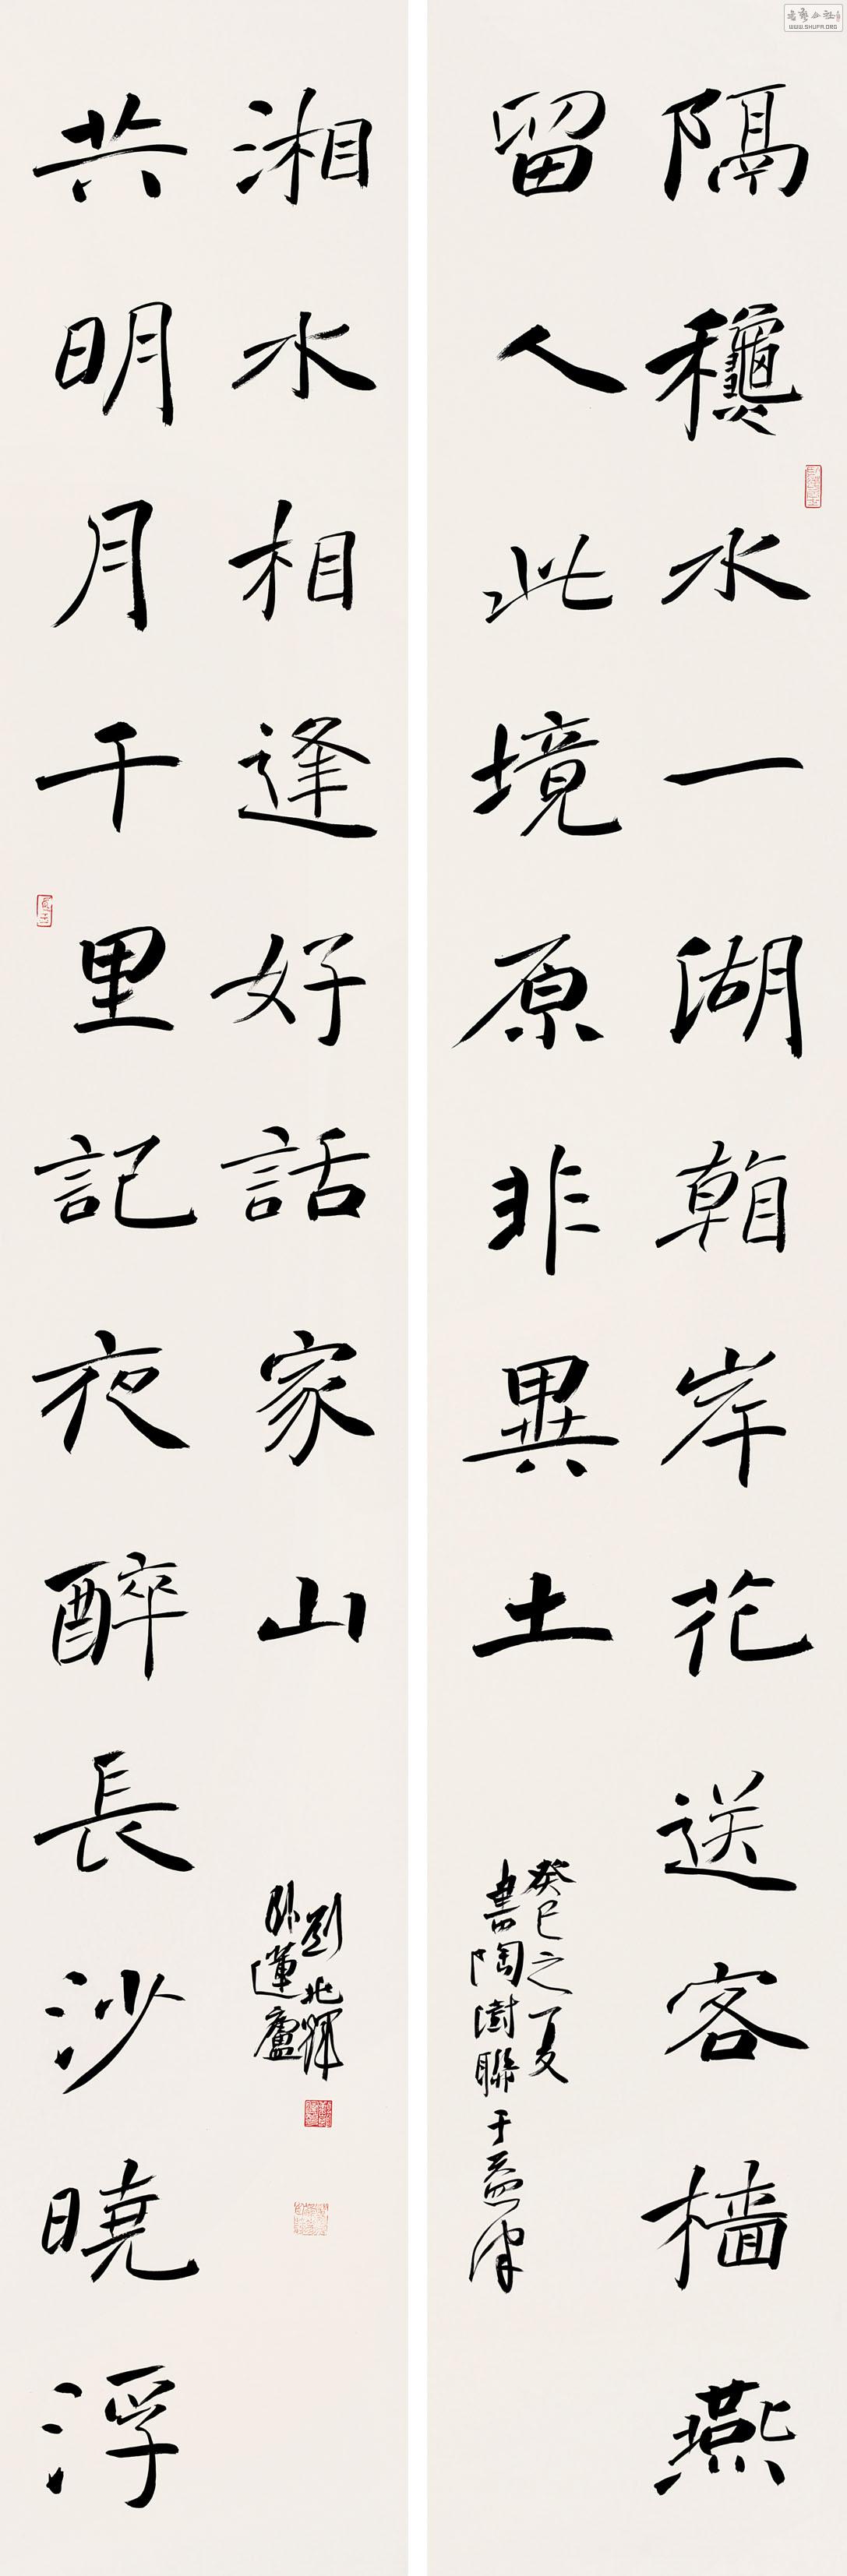 隔龝水一湖看岸花送客檣燕
留人此境原非異土
癸巳之夏
書陶澍聯于益津
共明月千里記夜醉長沙曉浮
湘水相逢好話家山
劉北輝
卧蓮廬
書藝公社
WWW.SHUFA.ORG